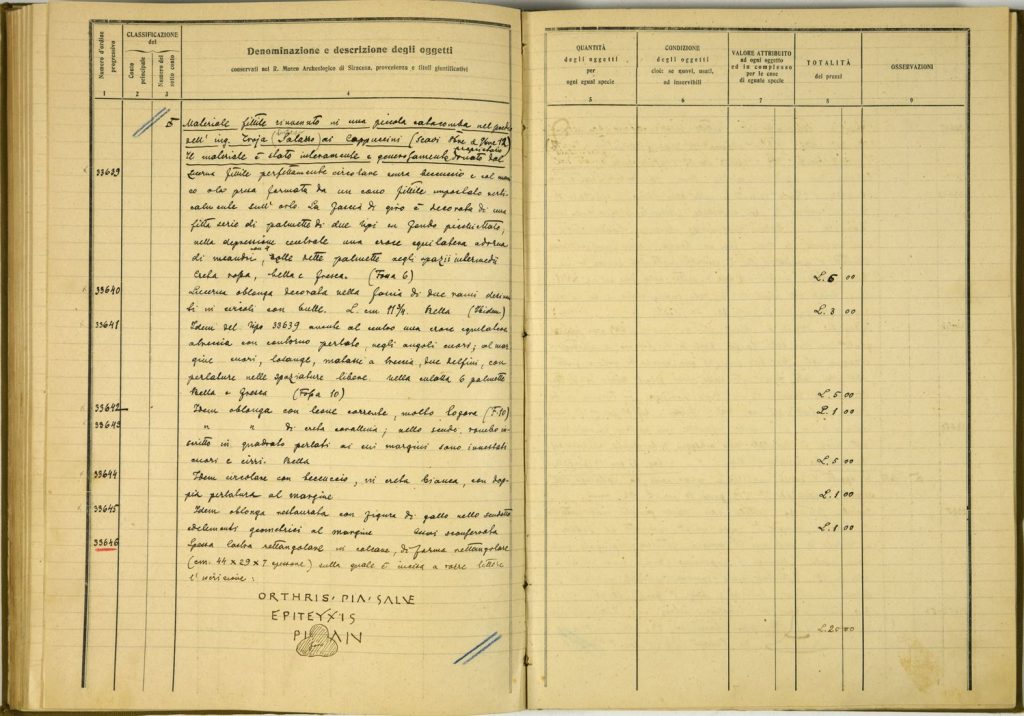 Numero d'ordine progressivo
CLASSIFICAZIONE del
Conto principale
Numero del sotto conto
Denominazione e descrizione degli oggetti
conservati nel R. Museo Archeologico di Siracusa, provenienza e titoli giustificativi
1 2 3 4
5 Materiale fittile rinvenuto in una piccola catacomba nel
dell' ing. Troja (Palazzo) ai Cappuccini (Scavi
proprietario
Il materiale è stato interamente e generosamente donato dal
33639 Lucerna fittile perfettamente circolare senza beccuccio e col
co orlo presa formata da un cono fittile impostato verti-
calmente sull' orlo. La fascia di giro è decorata di una
fitta serie di palmette di due tipi su fondo picchiettato,
nella depressione centrale una croce equilatera adorna
di meandri, dette palmette negli spazii intermedii
Creta rossa, bella e fresca. (Fossa 6)
33640 Lucerna oblonga decorata nella fascia di due rami
ti in circoli con bulle. L. cm 11¾. Bella (Ibidem)
33641 Idem del tipo 33639 avente al centro una croce equilatera
con contorno perlato, negli angoli cuori; al mar-
gine cuori, losange, matasse a treccia, due delfini, con
perlature nelle spaziature libere. Nella 6 palmette
Bella e fresca (Fossa 10)
33642 Idem oblonga con leone corrente, molto logora (F. 10)
33643 " " di creta cavallina; nello scudo, rombo in-
scritto in quadrato perlati ai cui margini sono innestati
cuori e cirri. Bella
33644 Idem circolare con beccuccio, in creta bianca, con dop-
pia perlatura al margine
33645 Idem oblonga restaurata con figura di gallo nello scudetto
ed elementi geometrici al margine
33646 Spessa lastra rettangolare in calcare, di forma rettangolare
(cm. 44 x 29 x 7 spessore) sulla quale è incisa a lettere
l' iscrizione:
ORTHRIS· PIA· SALVE
EPITEYXIS
QUANTITÀ degli oggetti per ogni egual specie
CONDIZIONE degli oggetti cioè: se nuovi, usati, od inservibili
VALORE ATTRIBUITO ad ogni oggetto od in complesso per le cose di eguale specie
TOTALITÀ dei prezzi
OSSERVAZIONI
5 6 7 8 9
L. 6 00
L. 3 00
L. 5 00
L. 1 00
L. 5 00
L. 1 00
L. 1 00
L. 20 00